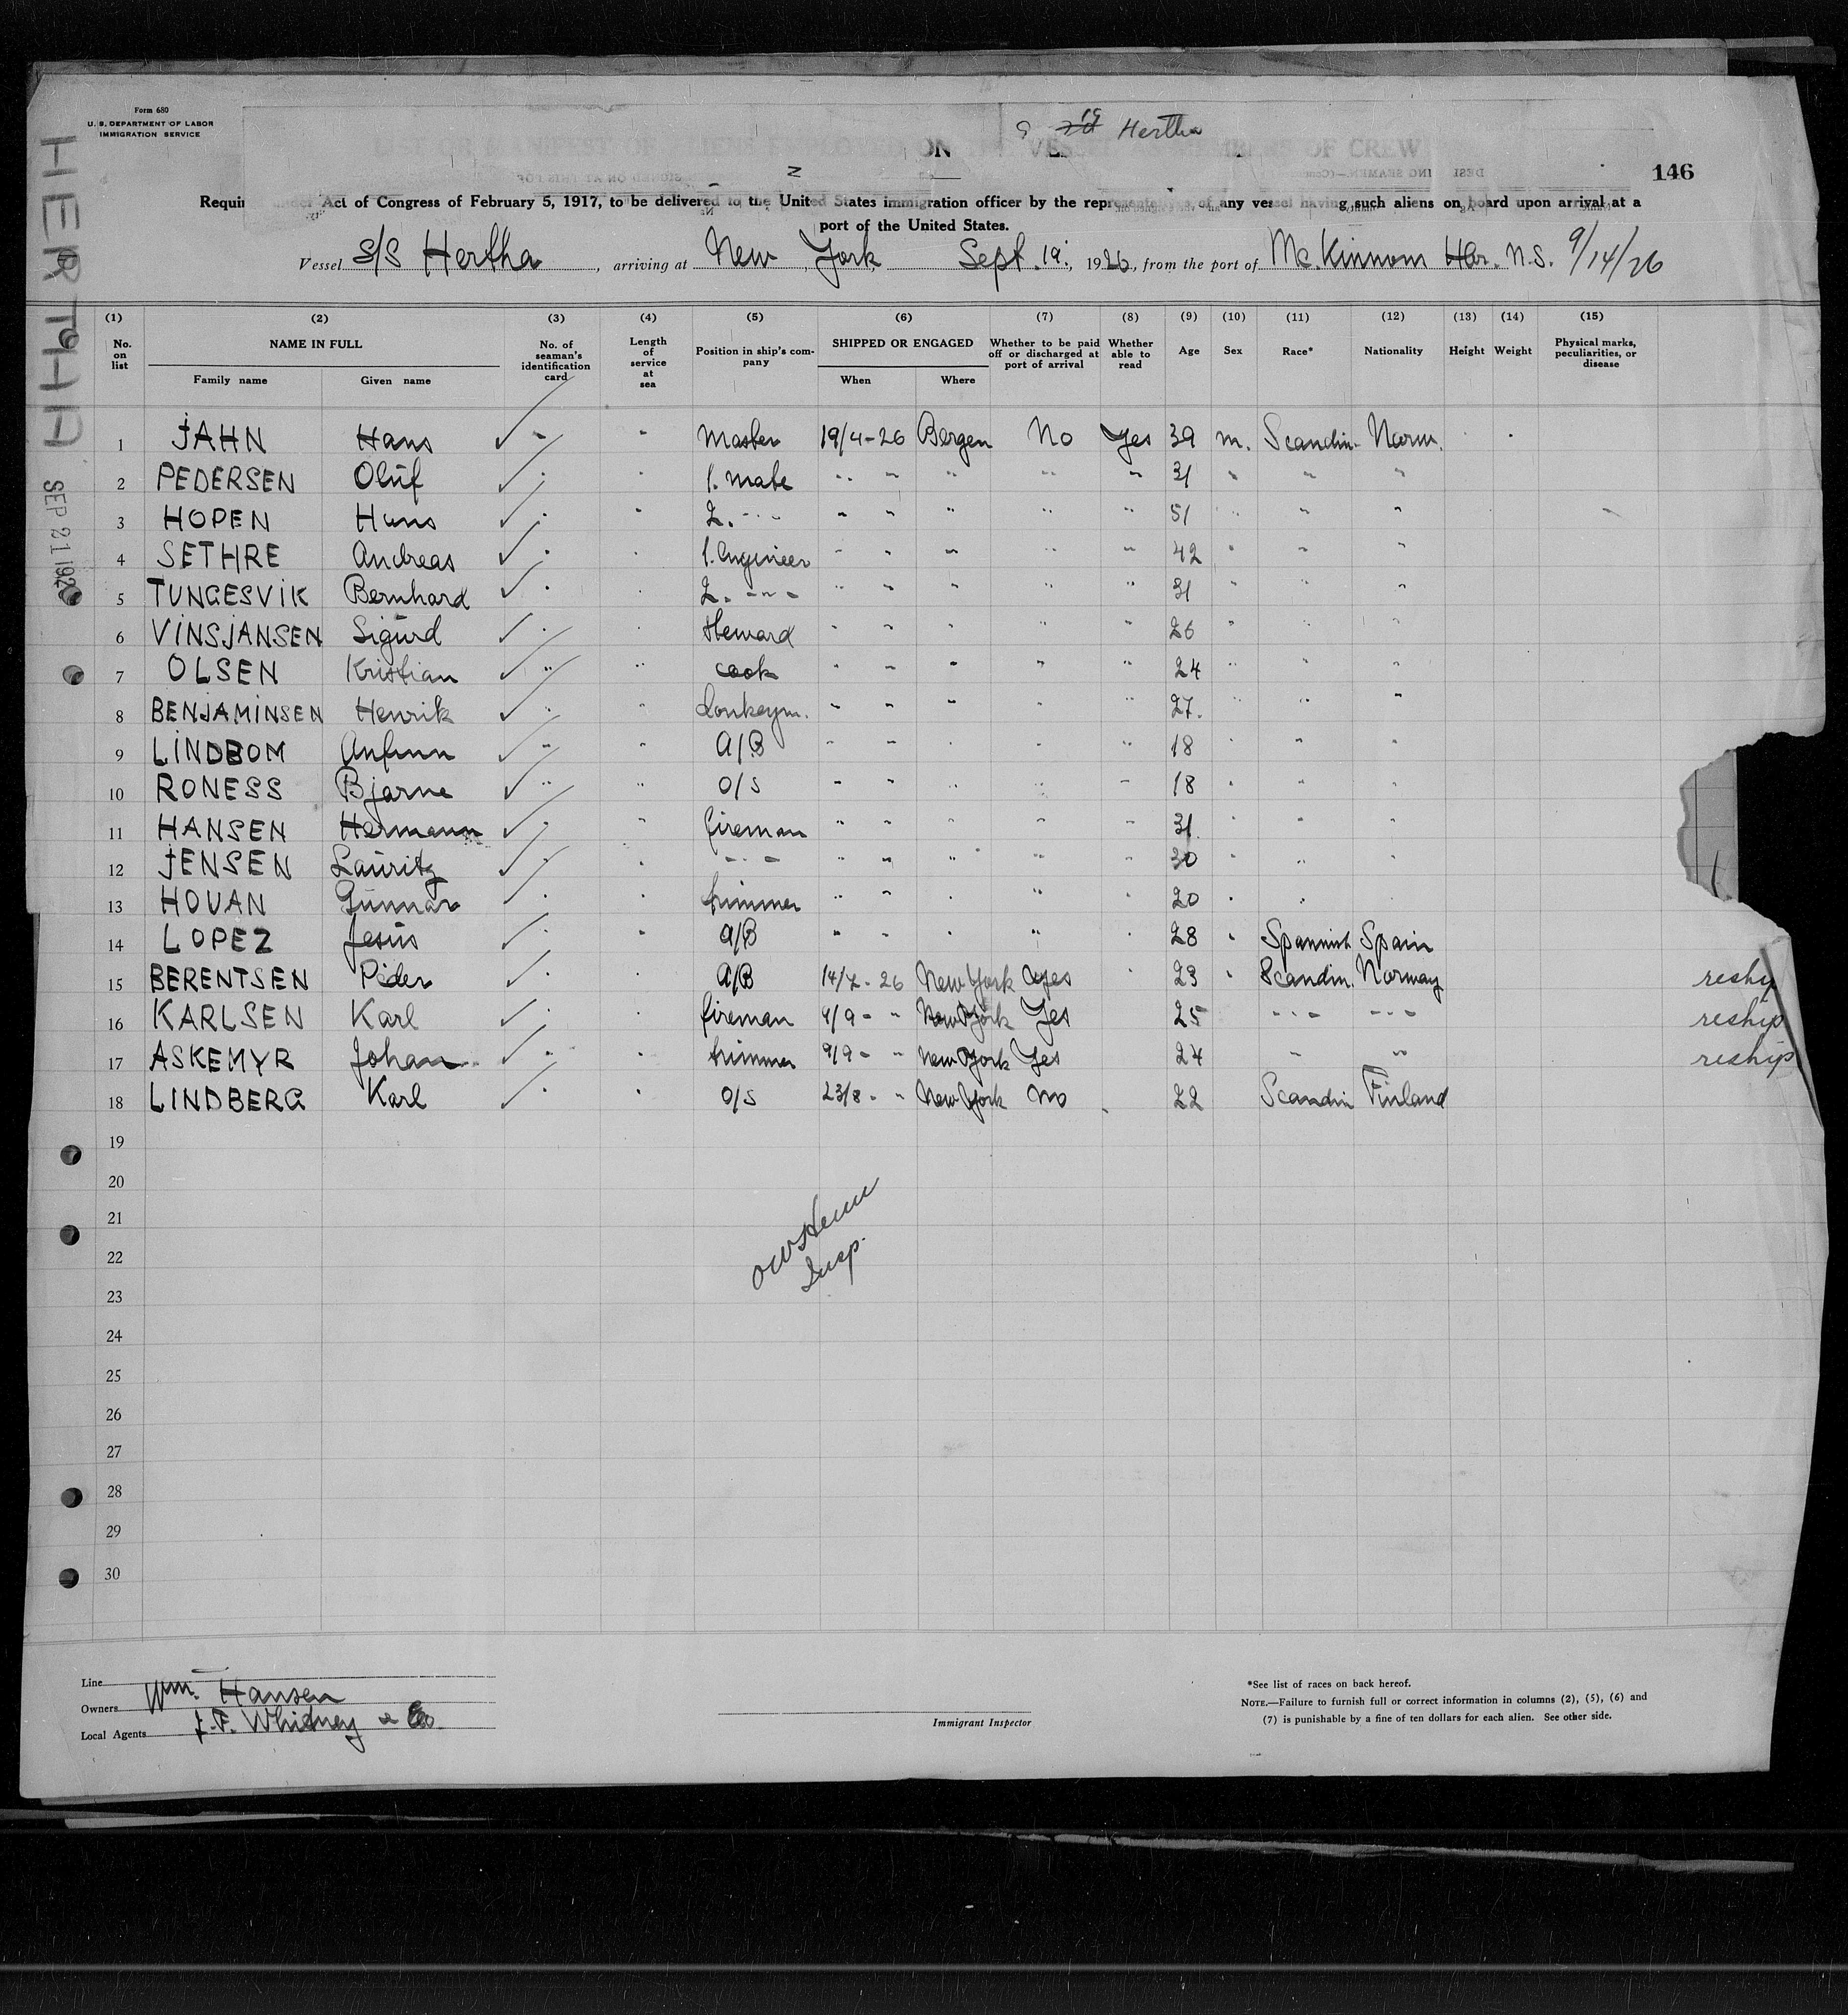 Form 680
U. S. DEPARTMENT OF LABOR
IMMIGRATION SERVICE
19 Hertha
LIST OR MANIFEST OF ALIENS EMPLOYED ON THE VESSEL AS MEMBERS OF CREW
146
Act of Congress of February 5, 1917, to be delivered to the United States immigration officer by the of any vessel having such aliens on board upon arrival at a
port of the United States.
Vessel S/S Hertha, arriving at New York, Sept. 19., 1926, from the port of Mc. Kinnom Har. N.S. 9/14/26
HERTHA
SEP 21 192
(1) (2) (3) (4) (5) (6) (7) (8) (9) (10) (11) (12) (13) (14) (15)
No. on list NAME IN FULL Family name Given name No. of seaman's identification card Length of service at sea Position in ship's company SHIPPED OR ENGAGED When Where Whether to be paid off or discharged at port of arrival Whether able to read Age Sex Race* Nationality Height Weight Physical marks, peculiarities, or disease
1 JAHN Hans " " Master 19/4-26 Bergen No Yes 39 m. Scandin. Norw.
2 PEDERSEN Oluf " " 1. mate " " " " " 31 " " "
3 HOPEN Hans " " 2. - " - " " " " " 51 " " "
4 SETHRE Andreas " " 1. engineer " " " " " 42 " " "
5 TUNGESVIK Bernhard " " 2. - " - " " " " " 31 " " "
6 VINSJANSEN Sigurd " " Steward " " " " " 26 " " "
7 OLSEN Kristian " " cook " " " " " 24 " " "
8 BENJAMINSEN Henrik " " Donkeym. " " " " " 27. " " "
9 LINDBOM Anfinn " " A/B " " " " " 18 " " "
10 RONESS Bjarne " " O/S " " " " " 18 " " "
11 HANSEN Hermann " " fireman " " " " " 31 " " "
12 JENSEN Lauritz " " - " - " " " " " 30 " " "
13 HOVAN Gunnar " " trimmer " " " " " 20 " " "
14 LOPEZ Jesus " " A/B " " " " " 28 " Spannish Spain
15 BERENTSEN Peder " " A/B 14/7-26 New York Yes " 23 " Scandin. Norway reship
16 KARLSEN Karl " " fireman 9/9 - " New York Yes 25 - " - - " - reship
17 ASKEMYR Johan " " trimmer 9/9 - " New York Yes 24 " " reship
18 LINDBERG Karl " " O/S 23/8 - " New York No " 22 Scandin Finland
19
20
21
22
23
24
25
26
27
28
29
30
Insp.
Line
Owners Wm. Hansen
Local Agents J. F. Whitney & Co.
Immigrant Inspector
*See list of races on back hereof.
NOTE.—Failure to furnish full or correct information in columns (2), (5), (6) and
(7) is punishable by a fine of ten dollars for each alien. See other side.